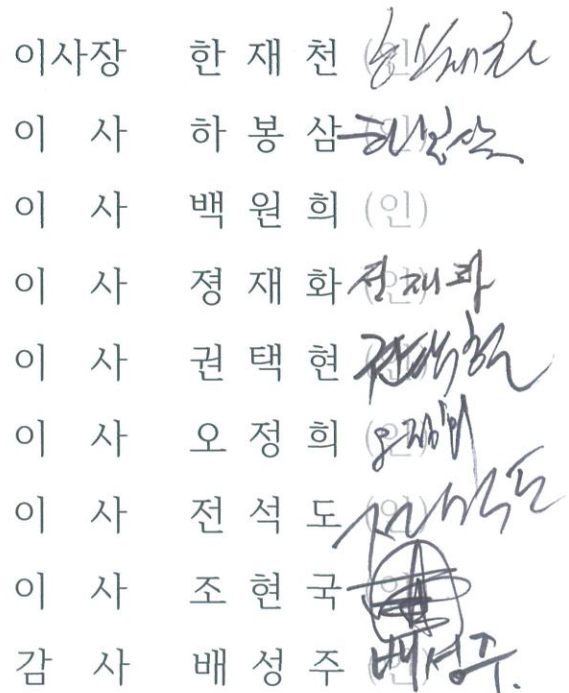 이사장 한 재 천 (인) 한재천
이 사 하 봉 삼 (인) 하봉삼
이 사 백 원 희 (인)
이 사 정 재 화 (인) 정재화
이 사 권 택 현 (인) 권택현
이 사 오 정 희 (인) 오정희
이 사 전 석 도 (인) 전석도
이 사 조 현 국 (인)
감 사 배 성 주 (인) 배성주.